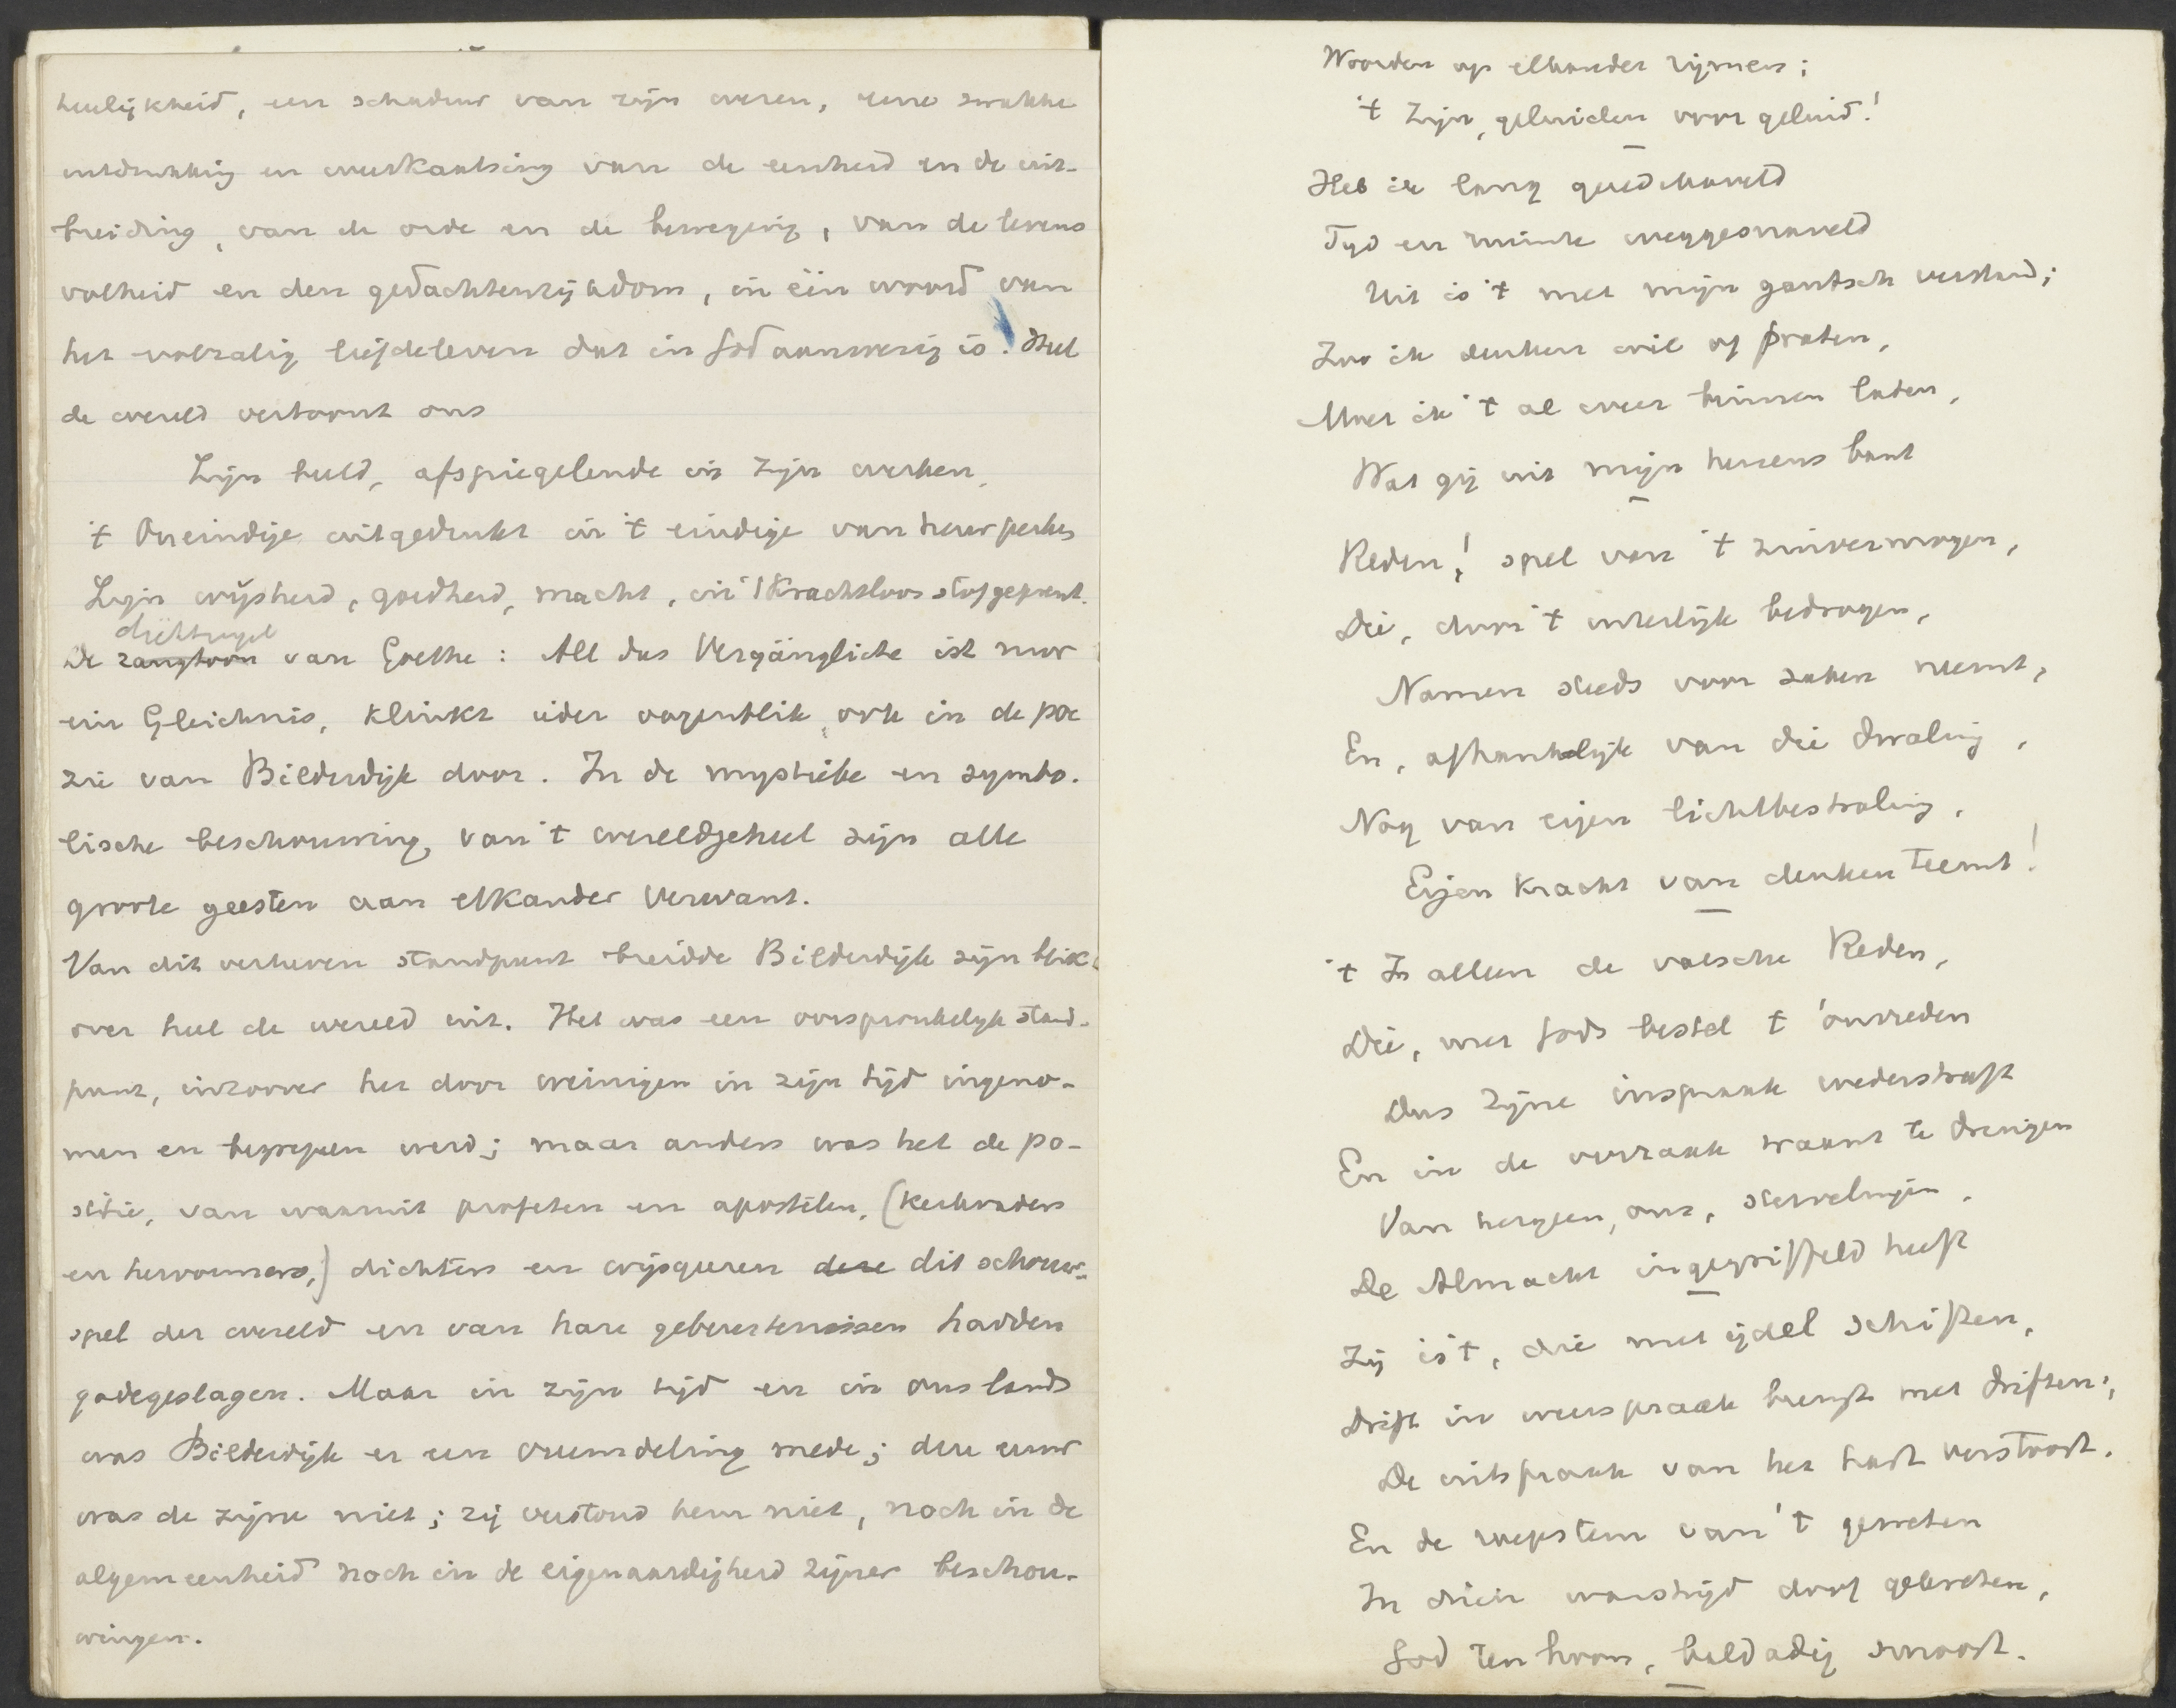 heerlijkheid, een schaduw van zijn wezen, eene zwakke
uitdrukking en weerkaatsing van de eenheid en de uit-
breiding, van de orde en de beweging, van de levens
volheid en den gedachtenrijkdom, in één woord van
het volzalig liefdeleven dat in God aanwezig is. Heel
de wereld vertoont ons
Zijn beeld, afspiegelende in zijn werken,
't Oneindige uitgedrukt in 't eindige van heur perken
Zijn wijsheid, goedheid, macht, in 't krachtloos stof geprent.
dichtregel
De zangtoon van Goethe: All das Vergängliche ist nur
ein Gleichnis, klinkt ieder oogenblik, ook in de poë
zie van Bilderdijk door. In de mystieke en symbo-
lische beschouwing, van 't wereldgeheel zijn alle
groote geesten aan elkander verwant.
Van dit verheven standpunt breidde Bilderdijk zijn blik
over heel de wereld uit. Het was een oorspronkelijk stand-
punt, inzoover het door weinigen in zijn tijd ingeno-
men en begrepen werd; maar anders was het de po-
sitie, van waaruit profeten en apostelen, (kerkvaders
en hervormers,) dichters en wijsgeeren deze dit schouw-
spel der wereld en van hare gebeurtenissen hadden
gadegeslagen. Maar in zijn tijd en in ons land
was Bilderdijk er een vreemdeling mede; deze eeuw
was de zijne niet; zij verstond hem niet, noch in de
algemeenheid noch in de eigenaardigheid zijner beschou-
wingen.
Woorden op elkander rijmen;
't Zijn, geluiden voor geluid!
Heb ik lang geredekaveld
Tijd en ruimte weggesnaveld
Uit is 't met mijn gantsch verstand;
Zoo ik denken wil of praten,
Moet ik 't al weer binnen laten,
Wat gij uit mijn hersens bant
Reden! spel van 't zinvermogen,
Die, door 't uiterlijk bedrogen,
Namen steeds voor zaken neemt,
En, afhanklijk van die dwaling,
Nog van eigen lichtbestraling,
Eigen kracht van denken teemt!
't Is alleen de valsche Reden,
Die, met Gods bestel t' onvreden
Dus zijne inspraak wederstreeft
En in de oorzaak waant te dringen
Van hetgeen, ons, stervelingen,
De Almacht ingegriffeld heeft
Zij is 't, die met ijdel schiften,
Drift in weerspraak brengt met driften;
De uitspraak van het hart verstoort.
En de roepstem van 't geweten
In dien warstrijd doof gekreten,
God ten hoon, baldadig smoort.